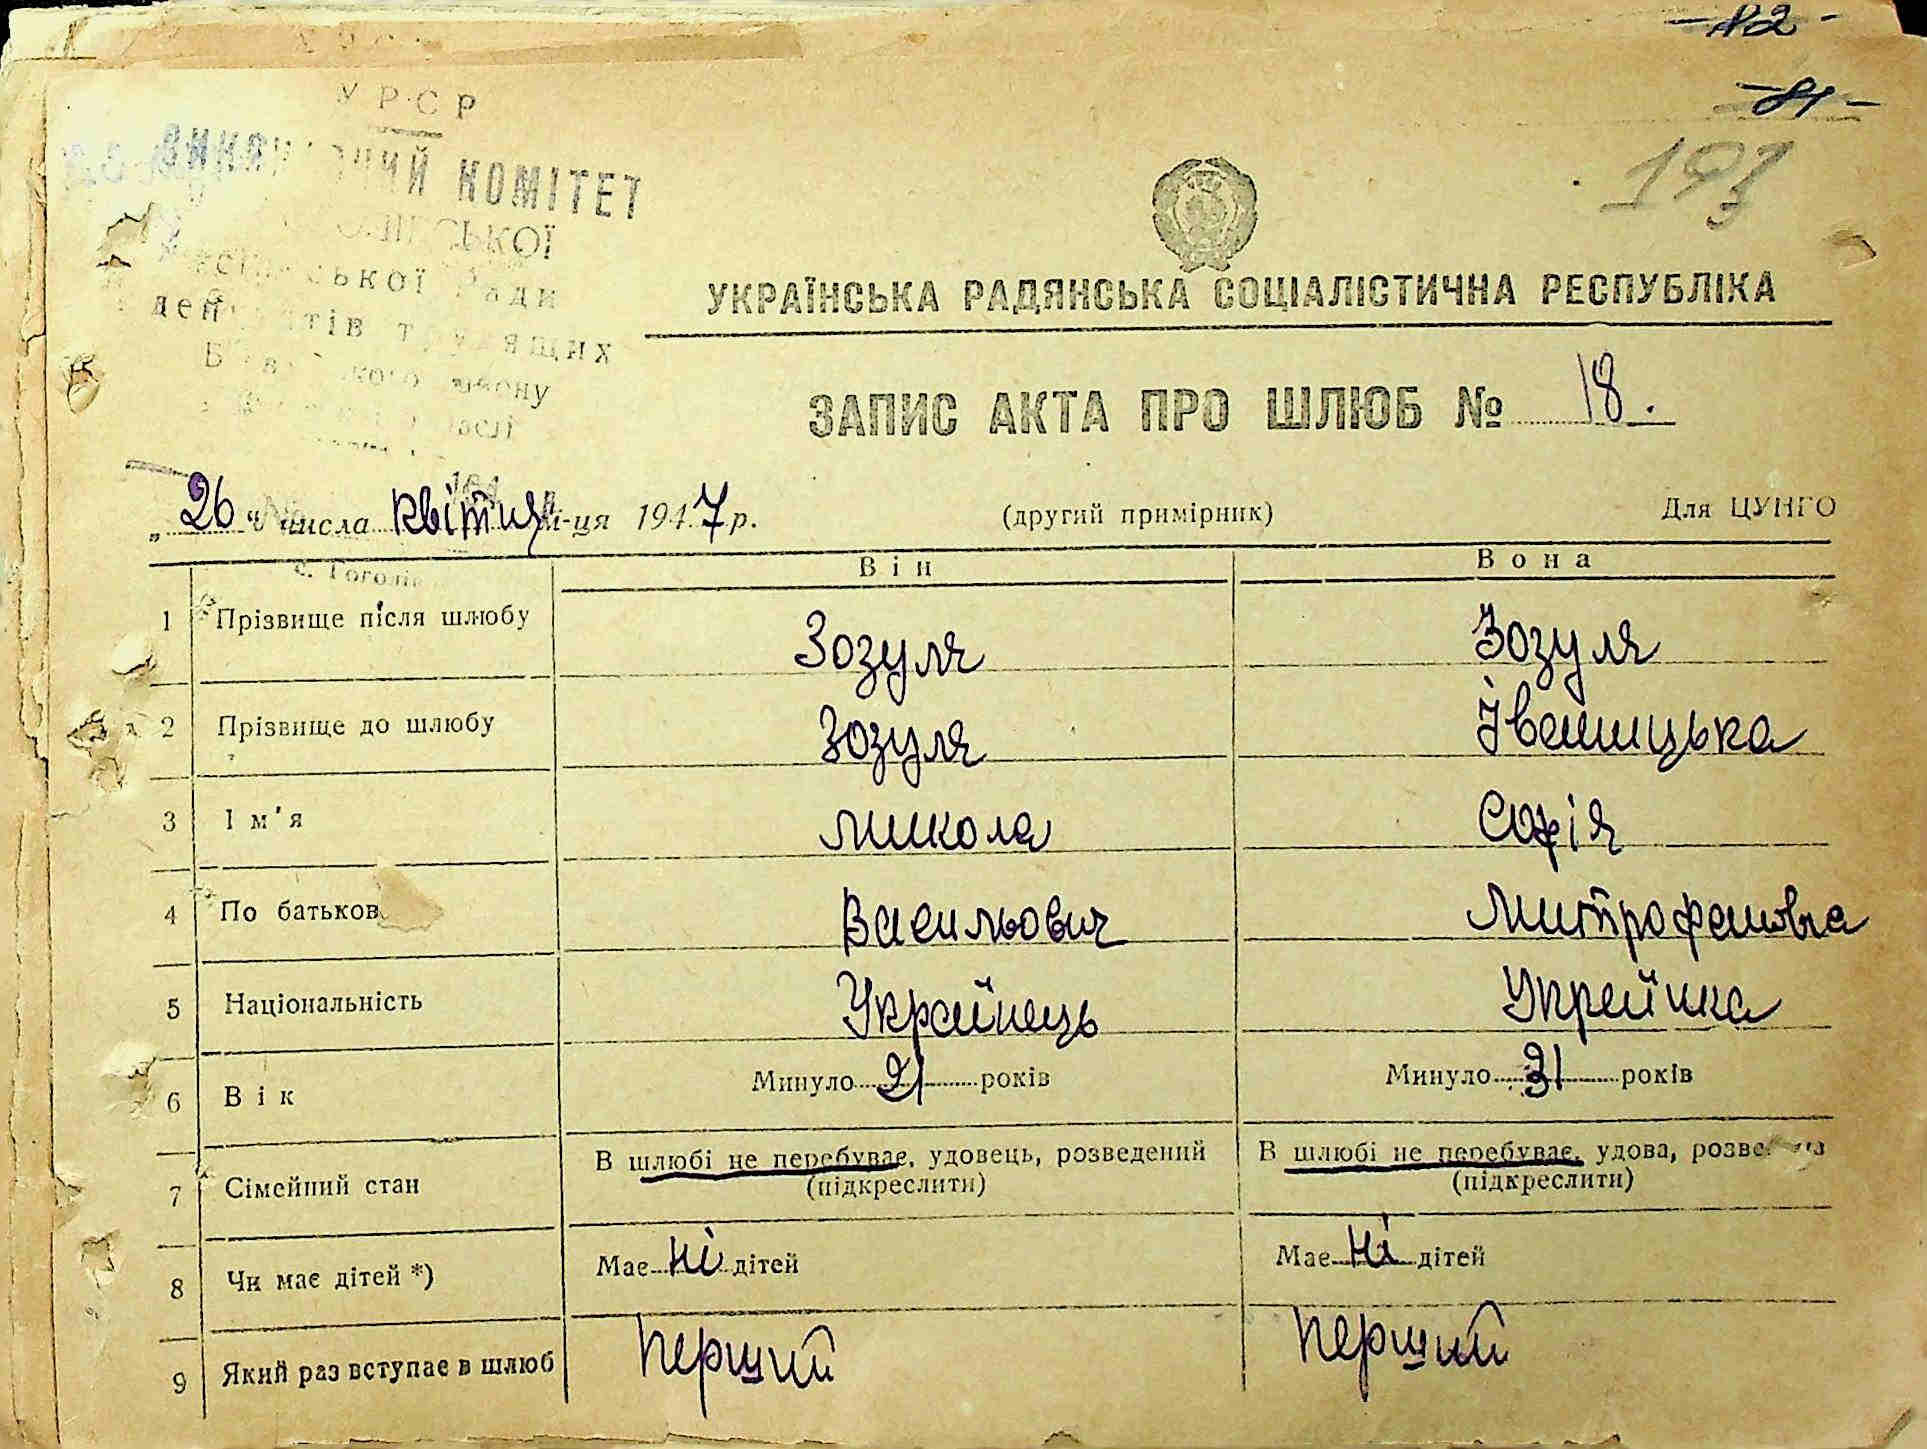 - 82 -
- 81 -
193
УРСР
ВИКОНАВЧИЙ КОМІТЕТ
СЬКОЇ
сільської Ради
депутатів трудящих
району
УКРАЇНСЬКА РАДЯНСЬКА СОЦІАЛІСТИЧНА РЕСПУБЛІКА
ЗАПИС АКТА ПРО ШЛЮБ № 18.
„26“ числа квітня м-ця 1947 р. (другий примірник) Для ЦУНГО
Він Вона
1 Прізвище після шлюбу Зозуля Зозуля
2 Прізвище до шлюбу Зозуля Іваницька
3 Ім'я Микола Софія
4 По батькові Васильович Митрофановна
5 Національність Українець Українка
6 Вік Минуло 21 років Минуло 31 років
7 Сімейний стан В шлюбі не перебуває, удовець, розведений В шлюбі не перебуває, удова, розведена
(підкреслити) (підкреслити)
8 Чи має дітей *) Має ні дітей Має ні дітей
9 Який раз вступає в шлюб перший перший